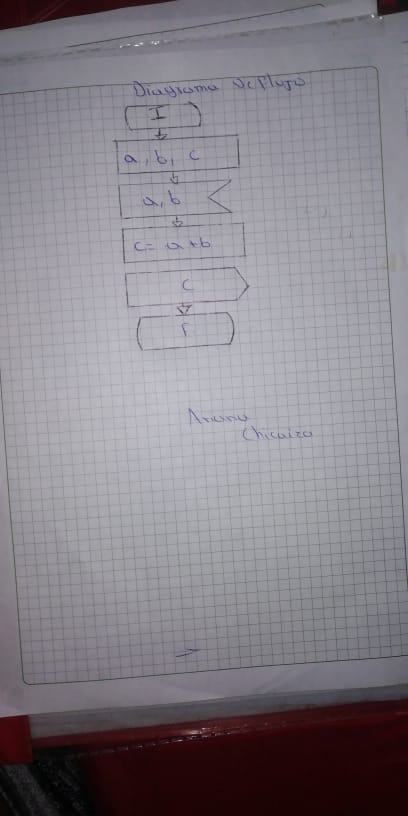 Diagrama de Flujo
I
a, b, c
a, b
c = a + b
c
F
Chicaiza